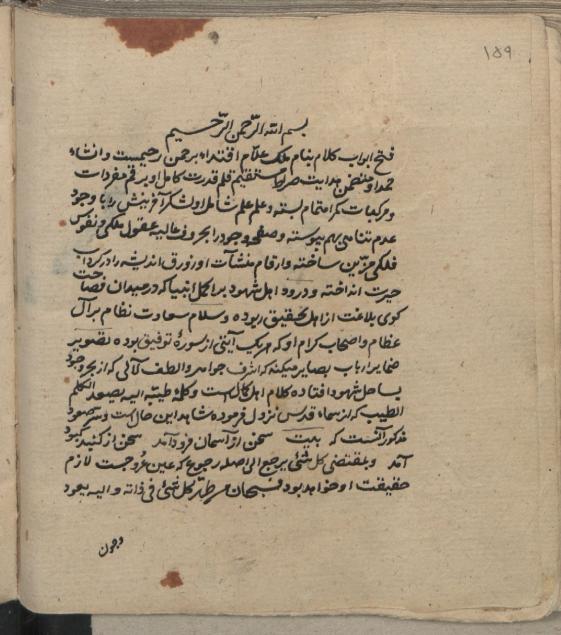 ۱۵۹
بسم الله الرحمن الرحیم
فتح ابواب کلام بنام ملک علّام اقتداء برحمن رحیمست و انشاء
حمد او متضمن هدایت صراط مستقیم قلم قدرت کامل او برقم مفردات
و مرکبات کمر اهتمام بسته و علم علم شامل او لشکر آفرینش را با وجود
عدم تناهی بهم پیوسته و صفحه وجود را بحروف عالیه عقول ملکی و نفوس
فلکی مزین ساخته و ارقام منشآت او زورق اندیشه را در گرداب
حیرت انداخته و درود اهل شهود بر اکمل انبیا که در میدان فصاحت
کوی بلاغت از اهل تحقیق ربوده و سلام سعادت نظام بر آل
عظام و اصحاب کرام او که هر یک آیتی از سورهٔ توفیق بوده تصویر
ضمایر ارباب بصایر میکند که اشرف جواهر و الطف لآلی که از بحر وجود
بساحل شهود افتاده کلام اهل کمال است و کلمه طیبه الیه یصعد الکلم
الطیب که از سماء قدس نزول فرموده شاهد این حال است و سر صعود
مذکور آنست که بیت سخن از آسمان فرود آمد سخن از کنبد کبود
آمد و بمقتضی کل شئی یرجع الی اصله رجوع که عین عروجست لازم
حقیقت او خواهد بود فسبحان من ظهر کل شئ فی ذاته و الیه یعود
و چون